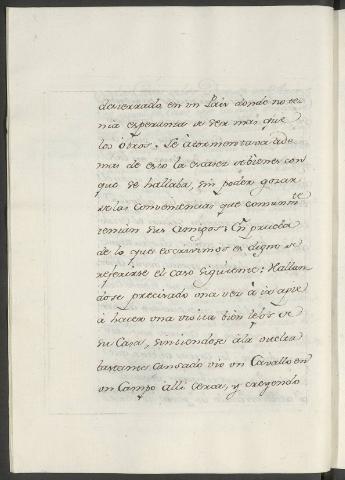 desterrado, en un Pais donde no te
nia esperanza de ver mas que
los Osos; Le atormentava ade
mas de esto la escasez de bienes con
que se hallaba, sin poder gozar
de las conveniencias que comunmte
tenian sus Amigos; En prueba
de lo que escrivimos es digno de
referirse el caso siguiente: Hallan
dose precisado una vez à ir à pie
à hacer una visita bien lejos de
su Casa, sintiendose à la vuelta
bastante cansado vio un Cavallo en
un Campo alli cerca, y creyendo